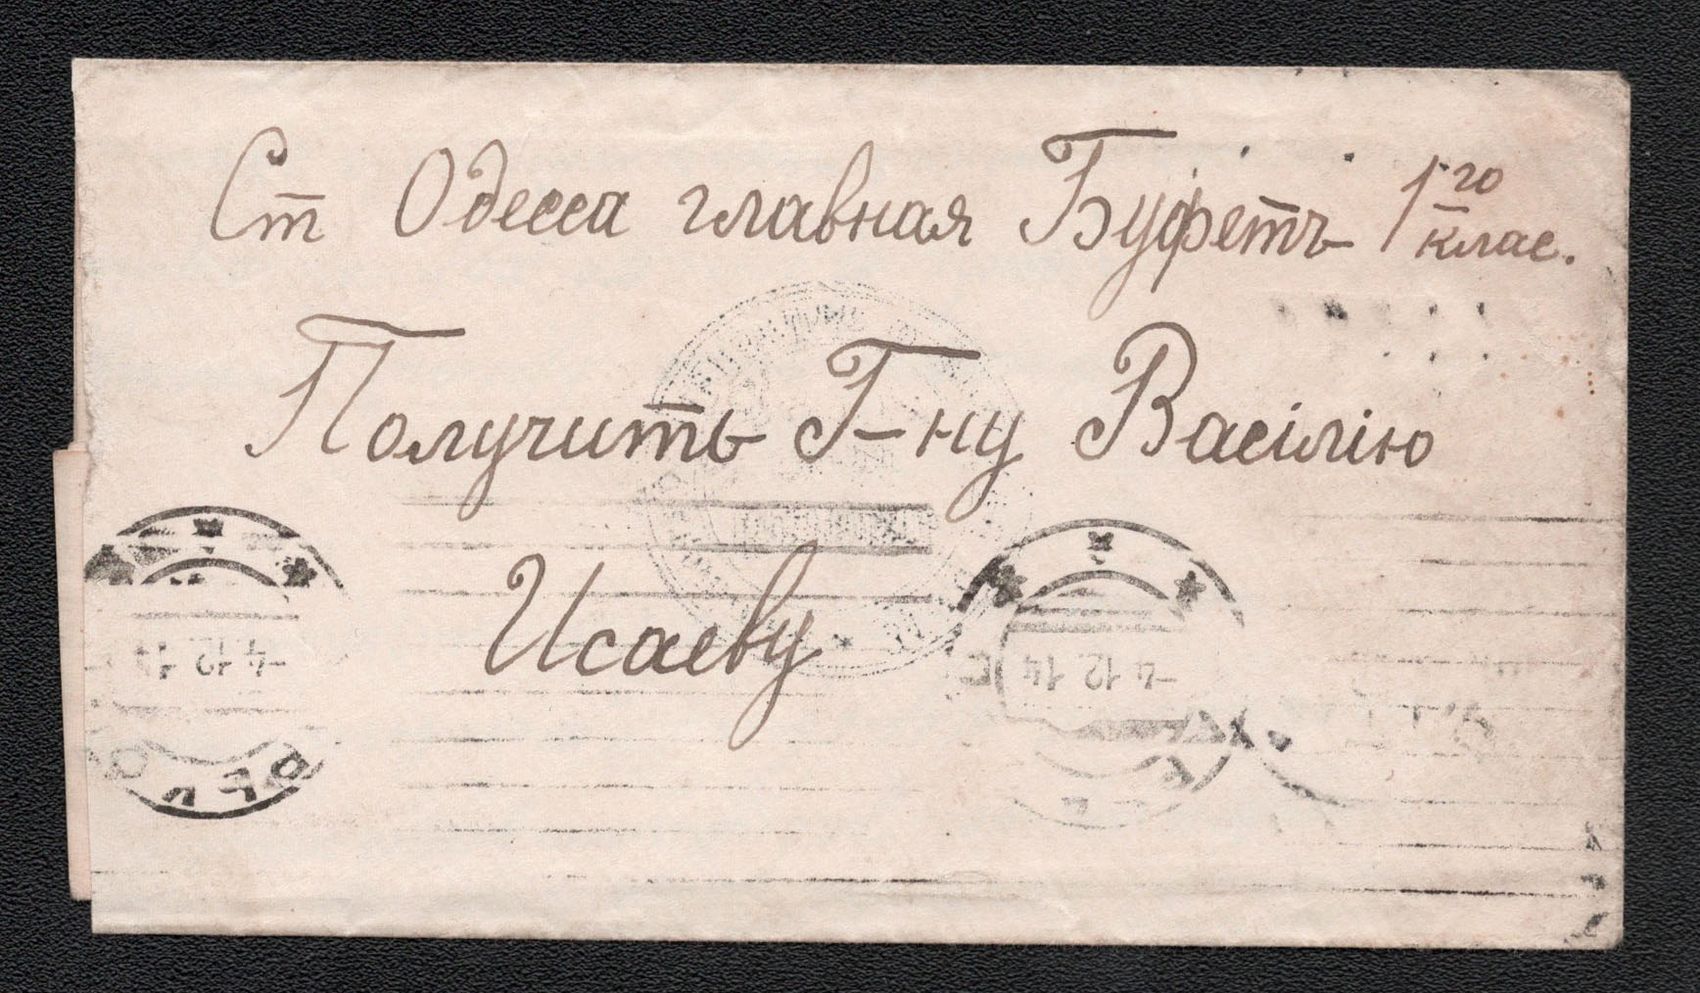 Ст Одесса главная Буфетъ 1го клас.
Получить Г-ну Васілію
Исаеву
-4.12.14
-4.12.14